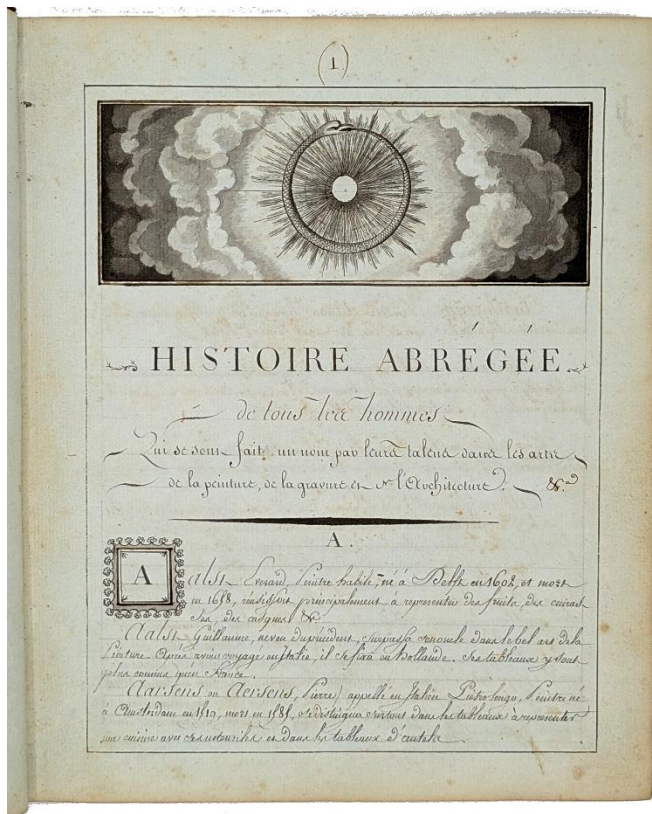 (1)
HISTOIRE ABRÉGÉE
de tous les hommes
Qui se sont fait un nom par leurs talens dans les arts
de la peinture, de la gravure et de l'Architecture. &.a
A.
A
Aalst Everard, Peintre habile, né à Delft en 1602, et mort
en 1658, réussissoit principalement à representer des fruits, des cuiras
ses, des casques &c
Aalst Guillaume, neveu du précédent, surpassa son oncle dans le bel art de la
Peinture. Après avoir voyagé en Italie, il se fixa en Hollande. Ses tableaux y sont
plus connus qu'en France.
Aarsens ou Aersens, (Pierre) appellé en Italien Pietro longo, Peintre né
à Amsterdam en 1519, mort en 1585, se distingua surtout dans les tableaux à representer
une cuisine avec ses ustensiles et dans les tableaux d'autels